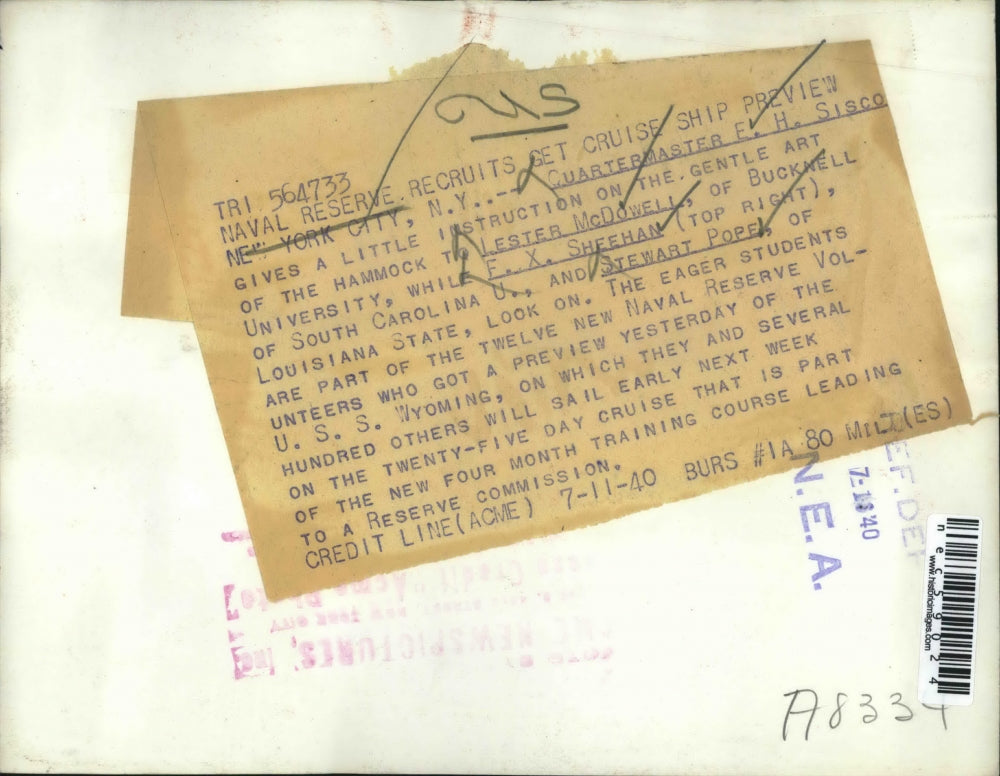 US
TRI 564733
NAVAL RESERVE RECRUITS GET CRUISE SHIP PREVIEW
NEW YORK CITY, N.Y..--QUARTERMASTER E. H. SISCO
GIVES A LITTLE INSTRUCTION ON THE GENTLE ART
OF THE HAMMOCK TO LESTER MCDOWELL, OF BUCKNELL
UNIVERSITY, WHILE F. X. SHEEHAN (TOP RIGHT),
OF SOUTH CAROLINA U., AND STEWART POPE, OF
LOUISIANA STATE, LOOK ON. THE EAGER STUDENTS
ARE PART OF THE TWELVE NEW NAVAL RESERVE VOL-
UNTEERS WHO GOT A PREVIEW YESTERDAY OF THE
U. S. S. WYOMING, ON WHICH THEY AND SEVERAL
HUNDRED OTHERS WILL SAIL EARLY NEXT WEEK
ON THE TWENTY-FIVE DAY CRUISE THAT IS PART
OF THE NEW FOUR MONTH TRAINING COURSE LEADING
TO A RESERVE COMMISSION.
CREDIT LINE(ACME) 7-11-40 BURS #1A 80 MILD(ES)
REF. DEPT
N.E.A.
NEWSPICTURES, INC
nec59024
www.historicimages.com